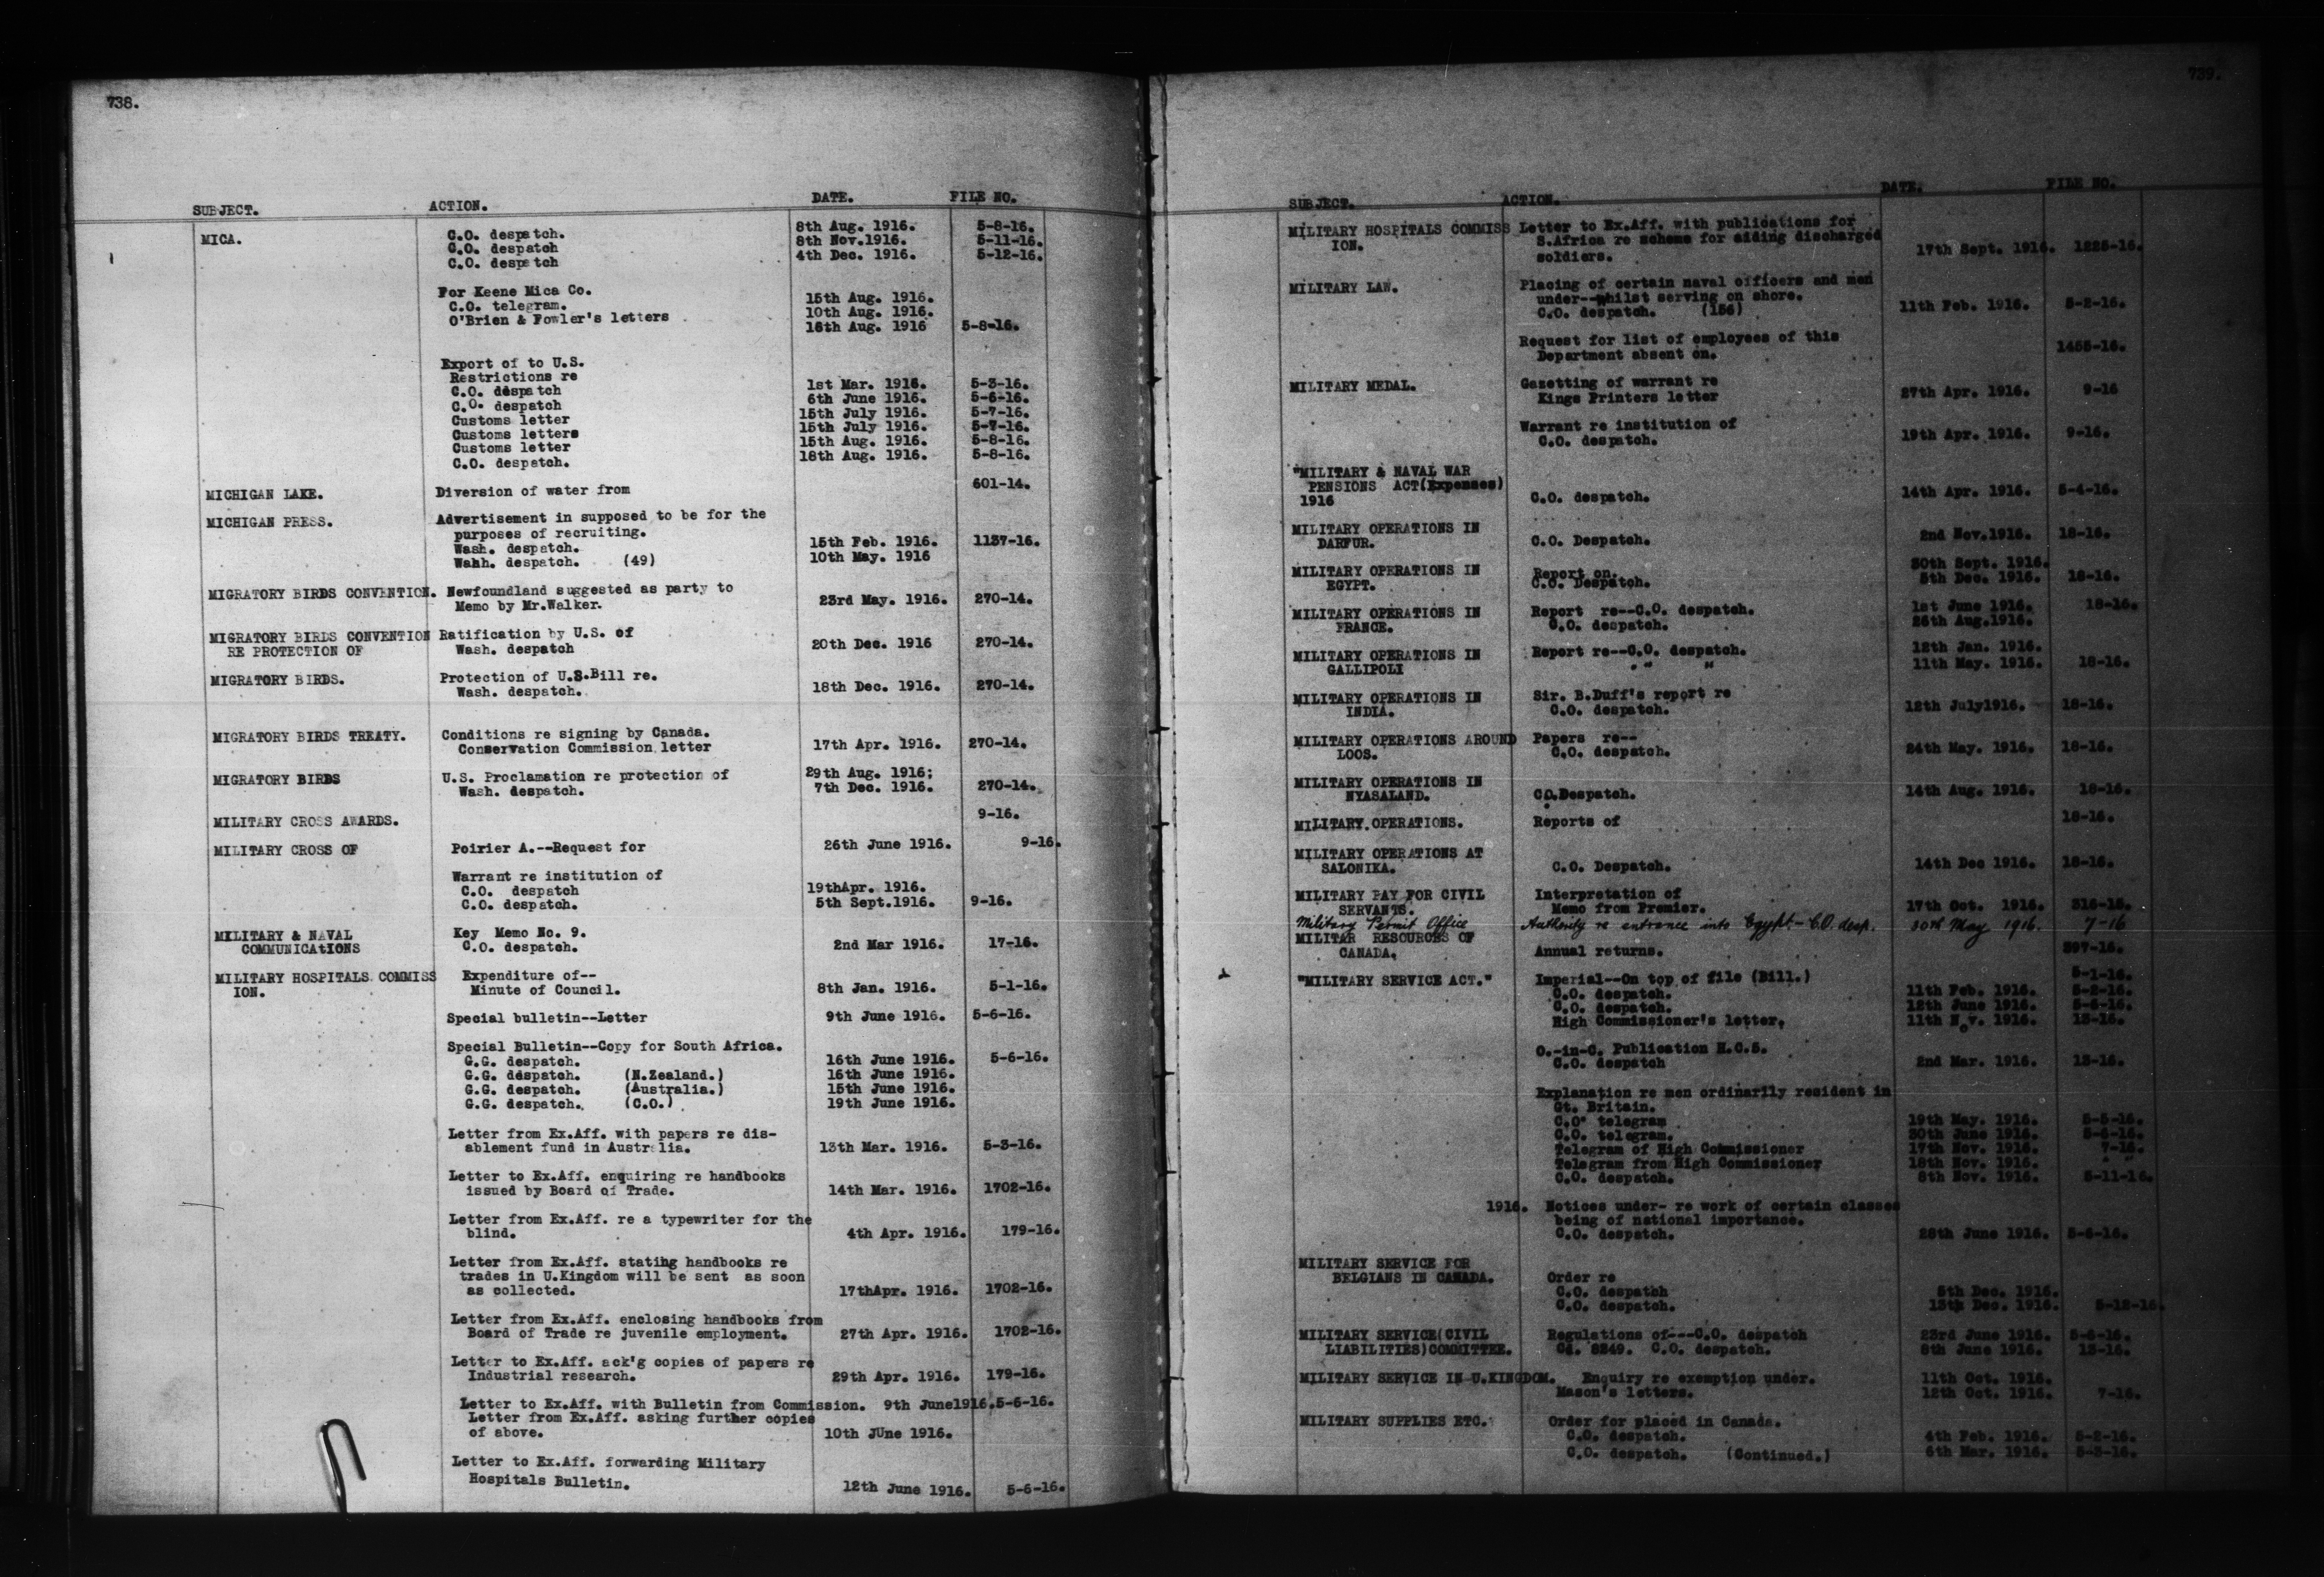 738.
SUBJECT. ACTION. DATE. FILE NO.
MICA. C.O. despatch. 8th Aug. 1916. 5-8-16.
C.O. despatch 8th Nov.1916. 5-11-16.
C.O. despatch 4th Dec. 1916. 5-12-16.
For Keene Mica Co.
C.O. telegram. 15th Aug. 1916.
O'Brien & Fowler's letters 10th Aug. 1916.
16th Aug. 1916 5-8-16.
Export of to U.S.
Restrictions re
C.O. despatch 1st Mar. 1916. 5-3-16.
C.O. despatch 6th June 1916. 5-6-16.
Customs letter 15th July 1916. 5-7-16.
Customs letters 15th July 1916. 5-7-16.
Customs letter 15th Aug. 1916. 5-8-16.
C.O. despatch. 18th Aug. 1916. 5-8-16.
MICHIGAN LAKE. Diversion of water from 601-14.
MICHIGAN PRESS. Advertisement in supposed to be for the
purposes of recruiting.
Wash. despatch. 15th Feb. 1916. 1137-16.
Wahh. despatch. (49) 10th May. 1916
MIGRATORY BIRDS CONVENTION. Newfoundland suggested as party to
Memo by Mr.Walker. 23rd May. 1916. 270-14.
MIGRATORY BIRDS CONVENTION Ratification by U.S. of
RE PROTECTION OF Wash. despatch 20th Dec. 1916 270-14.
MIGRATORY BIRDS. Protection of U.S.Bill re.
Wash. despatch. 18th Dec. 1916. 270-14.
MIGRATORY BIRDS TREATY. Conditions re signing by Canada.
Conservation Commission letter 17th Apr. 1916. 270-14.
MIGRATORY BIRDS U.S. Proclamation re protection of 29th Aug. 1916;
Wash. despatch. 7th Dec. 1916. 270-14.
MILITARY CROSS AWARDS. 9-16.
MILITARY CROSS OF Poirier A.--Request for 26th June 1916. 9-16.
Warrant re institution of
C.O. despatch 19thApr. 1916.
C.O. despatch. 5th Sept.1916. 9-16.
MILITARY & NAVAL Key Memo No. 9.
COMMUNICAtIONS C.O. despatch. 2nd Mar 1916. 17-16.
MILITARY HOSPITALS COMMISS Expenditure of--
ION. Minute of Council. 8th Jan. 1916. 5-1-16.
Special bulletin--Letter 9th June 1916. 5-6-16.
Special Bulletin--Copy for South Africa.
G.G. despatch. 16th June 1916. 5-6-16.
G.G. despatch. (N.Zealand.) 16th June 1916.
G.G. despatch. (Australia.) 15th June 1916.
G.G. despatch. (C.O.) 19th June 1916.
Letter from Ex.Aff. with papers re dis-
ablement fund in Australia. 13th Mar. 1916. 5-3-16.
Letter to Ex.Aff. enquiring re handbooks
issued by Board of Trade. 14th Mar. 1916. 1702-16.
Letter from Ex.Aff. re a typewriter for the
blind. 4th Apr. 1916. 179-16.
Letter from Ex.Aff. stating handbooks re
trades in U.Kingdom will be sent as soon
as collected. 17thApr. 1916. 1702-16.
Letter from Ex.Aff. enclosing handbooks from
Board of Trade re juvenile employment. 27th Apr. 1916. 1702-16.
Letter to Ex.Aff. ack'g copies of papers re
Industrial research. 29th Apr. 1916. 179-16.
Letter to Ex.Aff. with Bulletin from Commission. 9th June1916.5-6-16.
Letter from Ex.Aff. asking further copies
of above. 10th JUne 1916.
Letter to Ex.Aff. forwarding Military
Hospitals Bulletin. 12th June 1916. 5-6-16.
739.
SUBJECT. ACTION. DATE. FILE NO.
MILITARY HOSPITALS COMMISS Letter to Ex.Aff. with publications for
ION. S.Africa re scheme for aiding discharged
soldiers. 17th Sept. 1916. 1225-16.
MILITARY LAW. Placing of certain naval officers and men
under--whilst serving on shore.
C.O. despatch. (156) 11th Feb. 1916. 5-2-16.
Request for list of employees of this
Department absent on. 1465-16.
MILITARY MEDAL. Gazetting of warrant re
Kings Printers letter 27th Apr. 1916. 9-16
Warrant re institution of
C.O. despatch. 19th Apr. 1916. 9-16.
"MILITARY & NAVAL WAR
PENSIONS ACT(Expenses)
1916 C.O. despatch. 14th Apr. 1916. 5-4-16.
MILITARY OPERATIONS IN
DARFUR. C.O. Despatch. 2nd Nov.1916. 18-16.
MILITARY OPERATIONS IN Report on. 30th Sept. 1916.
EGYPT. C.O. Despatch. 5th Dec. 1916. 18-16.
MILITARY OPERATIONS IN Report re--C.O. despatch. 1st June 1916. 18-16.
FRANCE. C.O. despatch. 26th Aug.1916.
MILITARY OPERATIONS IN Report re--C.O. despatch. 12th Jan. 1916.
GALLIPOLI " " 11th May. 1916. 18-16.
MILITARY OPERATIONS IN Sir. B.Duff's report re
INDIA. C.O. despatch. 12th July1916. 18-16.
MILITARY OPERATIONS AROUND Papers re--
LOOS. C.O. despatch. 24th May. 1916. 18-16.
MILITARY OPERATIONS IN
NYASALAND. C.O.Despatch. 14th Aug. 1916. 18-16.
MILITARY OPERATIONS. Reports of 18-16.
MILITARY OPERATIONS AT
SALONIKA. C.O. Despatch. 14th Dec 1916. 18-16.
MILITARY PAY FOR CIVIL Interpretation of
SERVANTS. Memo from Premier. 17th Oct. 1916. 316-15.
Military Permit Office Authority re entrance into Egypt - C.O. desp. 30th May 1916. 7-16
MILITAR RESOURCES OF
CANADA. Annual returns. 397-16.
"MILITARY SERVICE ACT." Imperial--On top of file (Bill.) 5-1-16.
C.O. despatch. 11th Feb. 1916. 5-2-16.
C.O. despatch. 12th June 1916. 5-6-16.
High Commissioner's letter. 11th Nov. 1916. 13-16.
O.-in-C. Publication H.C.5.
C.O. despatch 2nd Mar. 1916. 13-16.
Explanation re men ordinarily resident in
Gt. Britain.
C.O. telegram 19th May. 1916. 5-5-16.
C.O. telegram. 30th June 1916. 5-6-16.
Telegram of High Commissioner 17th Nov. 1916. 7-16.
Telegram from High Commissioner 18th Nov. 1916. " "
C.O. despatch. 8th Nov. 1916. 5-11-16.
1916. Notices under- re work of certain classes
being of national importance.
C.O. despatch. 28th June 1916. 5-6-16.
MILITARY SERVICE FOR
BELGIANS IN CANADA. Order re
C.O. despathh 5th Dec. 1916.
C.O. despatch. 13th Dec. 1916. 5-12-16.
MILITARY SERVICE(CIVIL Regulations of---C.O. despatch 23rd June 1916. 5-6-16.
LIABILITIES)COMMITTEE. Cd. 8249. C.O. despatch. 8th June 1916. 13-16.
MILITARY SERVICE IN U.KINGDOM. Enquiry re exemption under. 11th Oct. 1916.
Mason's letters. 12th Oct. 1916. 7-16.
MILITARY SUPPLIES ETC. Order for placed in Canada.
C.O. despatch. 4th Feb. 1916. 5-2-16.
C.O. despatch. (Continued.) 6th Mar. 1916. 5-3-16.